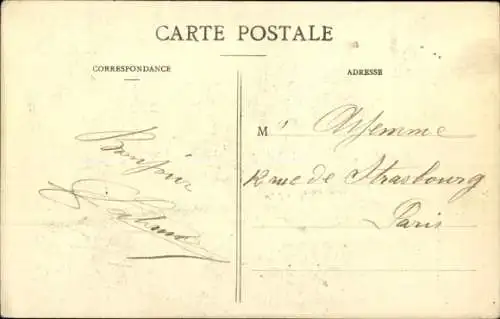 CARTE POSTALE
CORRESPONDANCE
Bonjour
ADRESSE
M
12 rue de Strasbourg
Paris